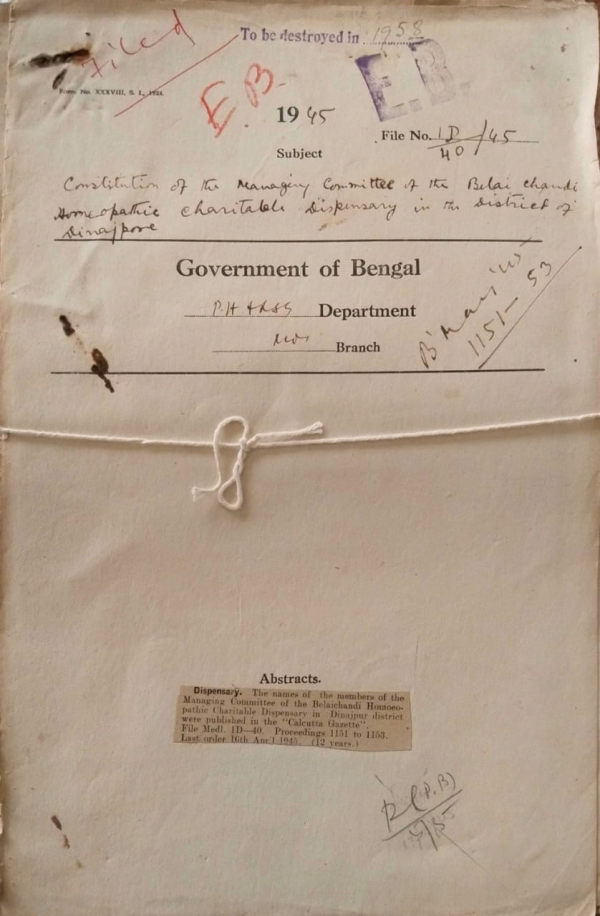 Filed
To be destroyed in 1958
Form No. XXXVIII, S. I., 1934.
E.B.
E.B.
1945
File No. 1D/40/45
Subject
Constitution of the Managing Committee of the Belai chandi
Homeopathic charitable Dispensary in the District of
Dinajpore
Government of Bengal
Department
Branch
1151-53
Abstracts.
Dispensary. The names of the members of the
Managing Committee of the Belaichandi Homoeo-
pathic Charitable Dispensary in Dinajpur district
were published in the "Calcutta Gazette"
File Medl. 1D—40. Proceedings 1151 to 1153.
Last order 16th April 1945. (12 years.)